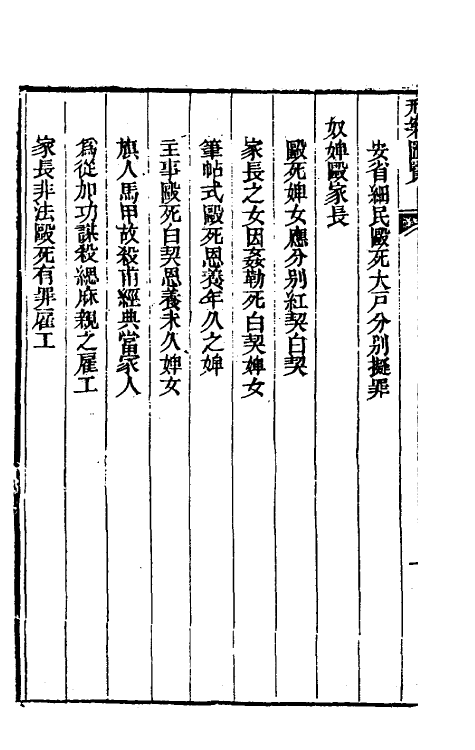 安省細民毆死大戸分别擬罪
奴婢毆家長
毆死婢女應分别紅契白契
家長之女因姦勒死白契婢女
筆帖式毆死恩養年久之婢
主事毆死白契恩養未久婢女
旗人馬甲故殺甫經典當家人
爲從加功謀殺緦麻親之雇工
家長非法毆死有罪雇工